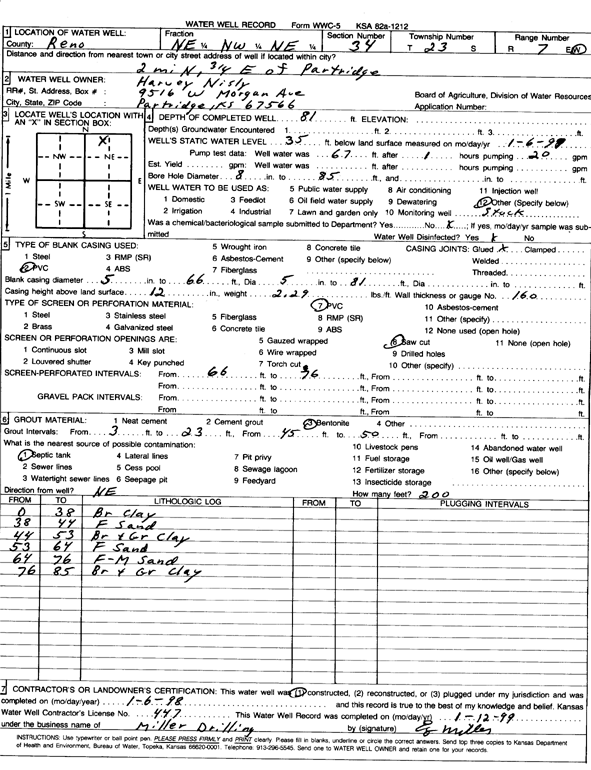 WATER WELL RECORD Form WWC-5 KSA 82a-1212
1 LOCATION OF WATER WELL: Fraction Section Number Township Number Range Number
County: Reno NE ¼ NW ¼ NE ¼ 34 T 23 S R 7 E/W
Distance and direction from nearest town or city street address of well if located within city?
2 mi N, 3/4 E of Partridge
2 WATER WELL OWNER: Harvey Nisly
RR#, St. Address, Box # : 9516 W Morgan Ave Board of Agriculture, Division of Water Resources
City, State, ZIP Code : Partridge, KS 67566 Application Number:
3 LOCATE WELL'S LOCATION WITH AN "X" IN SECTION BOX:
N
X
NW NE
W E
SW SE
S
1 Mile
4 DEPTH OF COMPLETED WELL 81 ft. ELEVATION:
Depth(s) Groundwater Encountered 1. ft. 2. ft. 3. ft.
WELL'S STATIC WATER LEVEL 35 ft. below land surface measured on mo/day/yr 1-6-98
Pump test data: Well water was 67 ft. after 1 hours pumping 20 gpm
Est. Yield gpm: Well water was ft. after hours pumping gpm
Bore Hole Diameter 8 in. to 85 ft., and in. to ft.
WELL WATER TO BE USED AS: 5 Public water supply 8 Air conditioning 11 Injection well
1 Domestic 3 Feedlot 6 Oil field water supply 9 Dewatering 12 Other (Specify below)
2 Irrigation 4 Industrial 7 Lawn and garden only 10 Monitoring well Stock
Was a chemical/bacteriological sample submitted to Department? Yes No X; If yes, mo/day/yr sample was submitted
Water Well Disinfected? Yes X No
5 TYPE OF BLANK CASING USED: 5 Wrought iron 8 Concrete tile CASING JOINTS: Glued X Clamped
1 Steel 3 RMP (SR) 6 Asbestos-Cement 9 Other (specify below) Welded
2 PVC 4 ABS 7 Fiberglass Threaded
Blank casing diameter 5 in. to 66 ft., Dia 5 in. to 81 ft., Dia in. to ft.
Casing height above land surface 12 in., weight 2.29 lbs./ft. Wall thickness or gauge No. 160
TYPE OF SCREEN OR PERFORATION MATERIAL: 7 PVC 10 Asbestos-cement
1 Steel 3 Stainless steel 5 Fiberglass 8 RMP (SR) 11 Other (specify)
2 Brass 4 Galvanized steel 6 Concrete tile 9 ABS 12 None used (open hole)
SCREEN OR PERFORATION OPENINGS ARE: 5 Gauzed wrapped 8 Saw cut 11 None (open hole)
1 Continuous slot 3 Mill slot 6 Wire wrapped 9 Drilled holes
2 Louvered shutter 4 Key punched 7 Torch cut 10 Other (specify)
SCREEN-PERFORATED INTERVALS: From 66 ft. to 76 ft., From ft. to ft.
From ft. to ft., From ft. to ft.
GRAVEL PACK INTERVALS: From ft. to ft., From ft. to ft.
From ft. to ft., From ft. to ft.
6 GROUT MATERIAL: 1 Neat cement 2 Cement grout 3 Bentonite 4 Other
Grout Intervals: From 3 ft. to 23 ft., From 45 ft. to 50 ft., From ft. to ft.
What is the nearest source of possible contamination: 10 Livestock pens 14 Abandoned water well
1 Septic tank 4 Lateral lines 7 Pit privy 11 Fuel storage 15 Oil well/Gas well
2 Sewer lines 5 Cess pool 8 Sewage lagoon 12 Fertilizer storage 16 Other (specify below)
3 Watertight sewer lines 6 Seepage pit 9 Feedyard 13 Insecticide storage
Direction from well? NE How many feet? 200
FROM TO LITHOLOGIC LOG FROM TO PLUGGING INTERVALS
0 38 Br Clay
38 44 F Sand
44 53 Br & Gr Clay
53 64 F Sand
64 76 F-M Sand
76 85 Br & Gr Clay
7 CONTRACTOR'S OR LANDOWNER'S CERTIFICATION: This water well was (1) constructed, (2) reconstructed, or (3) plugged under my jurisdiction and was
completed on (mo/day/year) 1-6-98 and this record is true to the best of my knowledge and belief. Kansas
Water Well Contractor's License No. 447 This Water Well Record was completed on (mo/day/yr) 1-12-99
under the business name of Miller Drilling by (signature) Miller
INSTRUCTIONS: Use typewriter or ball point pen. PLEASE PRESS FIRMLY and PRINT clearly. Please fill in blanks, underline or circle the correct answers. Send top three copies to Kansas Department
of Health and Environment, Bureau of Water, Topeka, Kansas 66620-0001. Telephone: 913-296-5545. Send one to WATER WELL OWNER and retain one for your records.